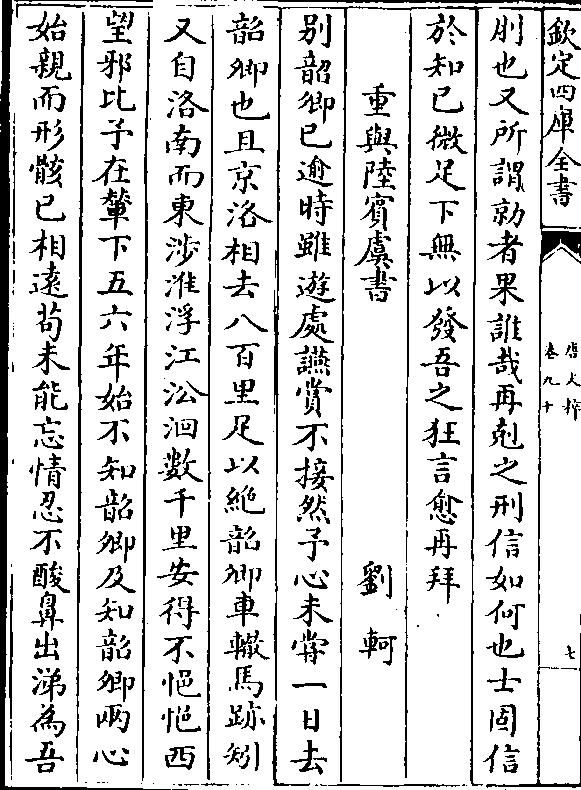 欽定四庫全書
唐文粹
卷九十
七
刖也又所謂勍者果誰哉再剋之刑信如何也士固信
於知已微足下無以發吾之狂言愈再拜
重與陸賓虞書　劉軻
別韶卿已逾時雖遊處讌賞不接然予心未甞一日去
韶卿也且京洛相去八百里足以絶韶卿車轍馬跡矧
又自洛南而東涉淮浮江沿洄數千里安得不悒悒西
望邪比予在輦下五六年始不知韶卿及知韶卿兩心
始親而形骸已相遠茍未能忘情忍不酸鼻出涕為吾